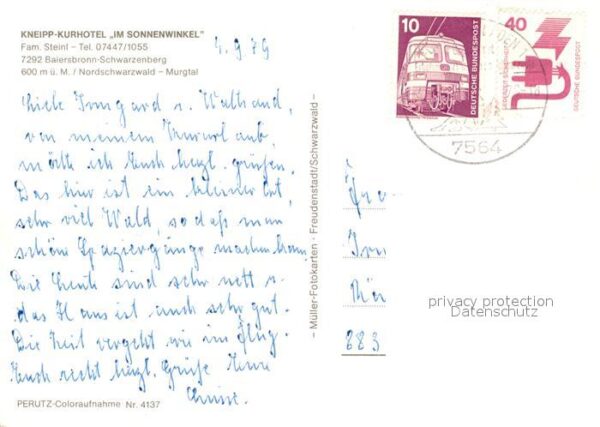 KNEIPP-KURHOTEL „IM SONNENWINKEL"
Fam. Steinl - Tel. 07447/1055
7292 Baiersbronn-Schwarzenberg
600 m ü. M. / Nordschwarzwald - Murgtal
4.9.79
Liebe Irmgard u. Waltraud,
von meinem
möcht ich Euch herzl. grüßen.
Das hier ist ein kleiner Ort,
sehr viel Wald, so daß man
schöne Spaziergänge machen kann.
Die Leute sind sehr nett u.
das Haus ist auch sehr gut.
Die Zeit vergeht wie im Flug.
Euch recht herzl. Grüße Eure
PERUTZ-Coloraufnahme Nr. 4137
– Müller-Fotokarten - Freudenstadt/Schwarzwald –
10
DEUTSCHE BUNDESPOST
40
DEUTSCHE BUNDESPOST
7564
Irm
883
privacy protection
Datenschutz